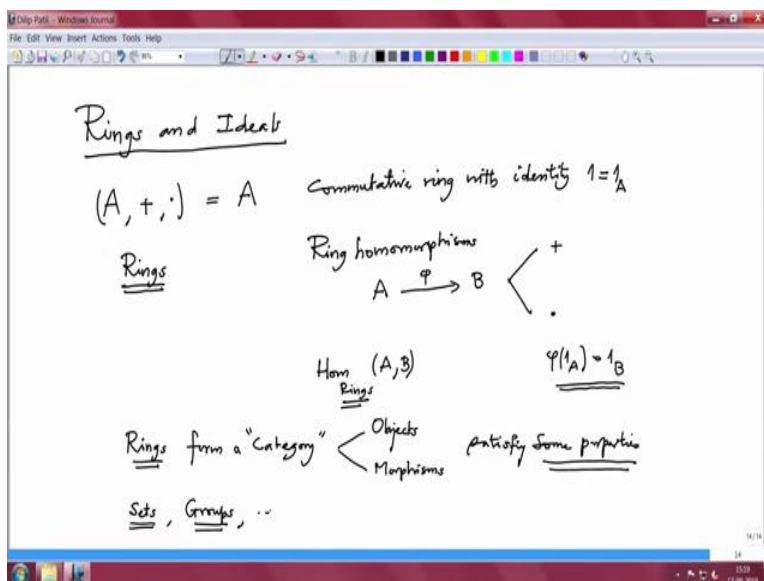 Dilip Patil - Windows Journal
File Edit View Insert Actions Tools Help
Rings and Ideals
(A, +, ·) = A Commutative ring with identity 1 = 1_A
Rings
Ring homomorphisms
A —φ→ B < + ·
Hom_Rings (A, B) φ(1_A) = 1_B
Rings form a "Category" < Objects Morphisms satisfy some properties
Sets, Groups, ..
14/14
14
15:19